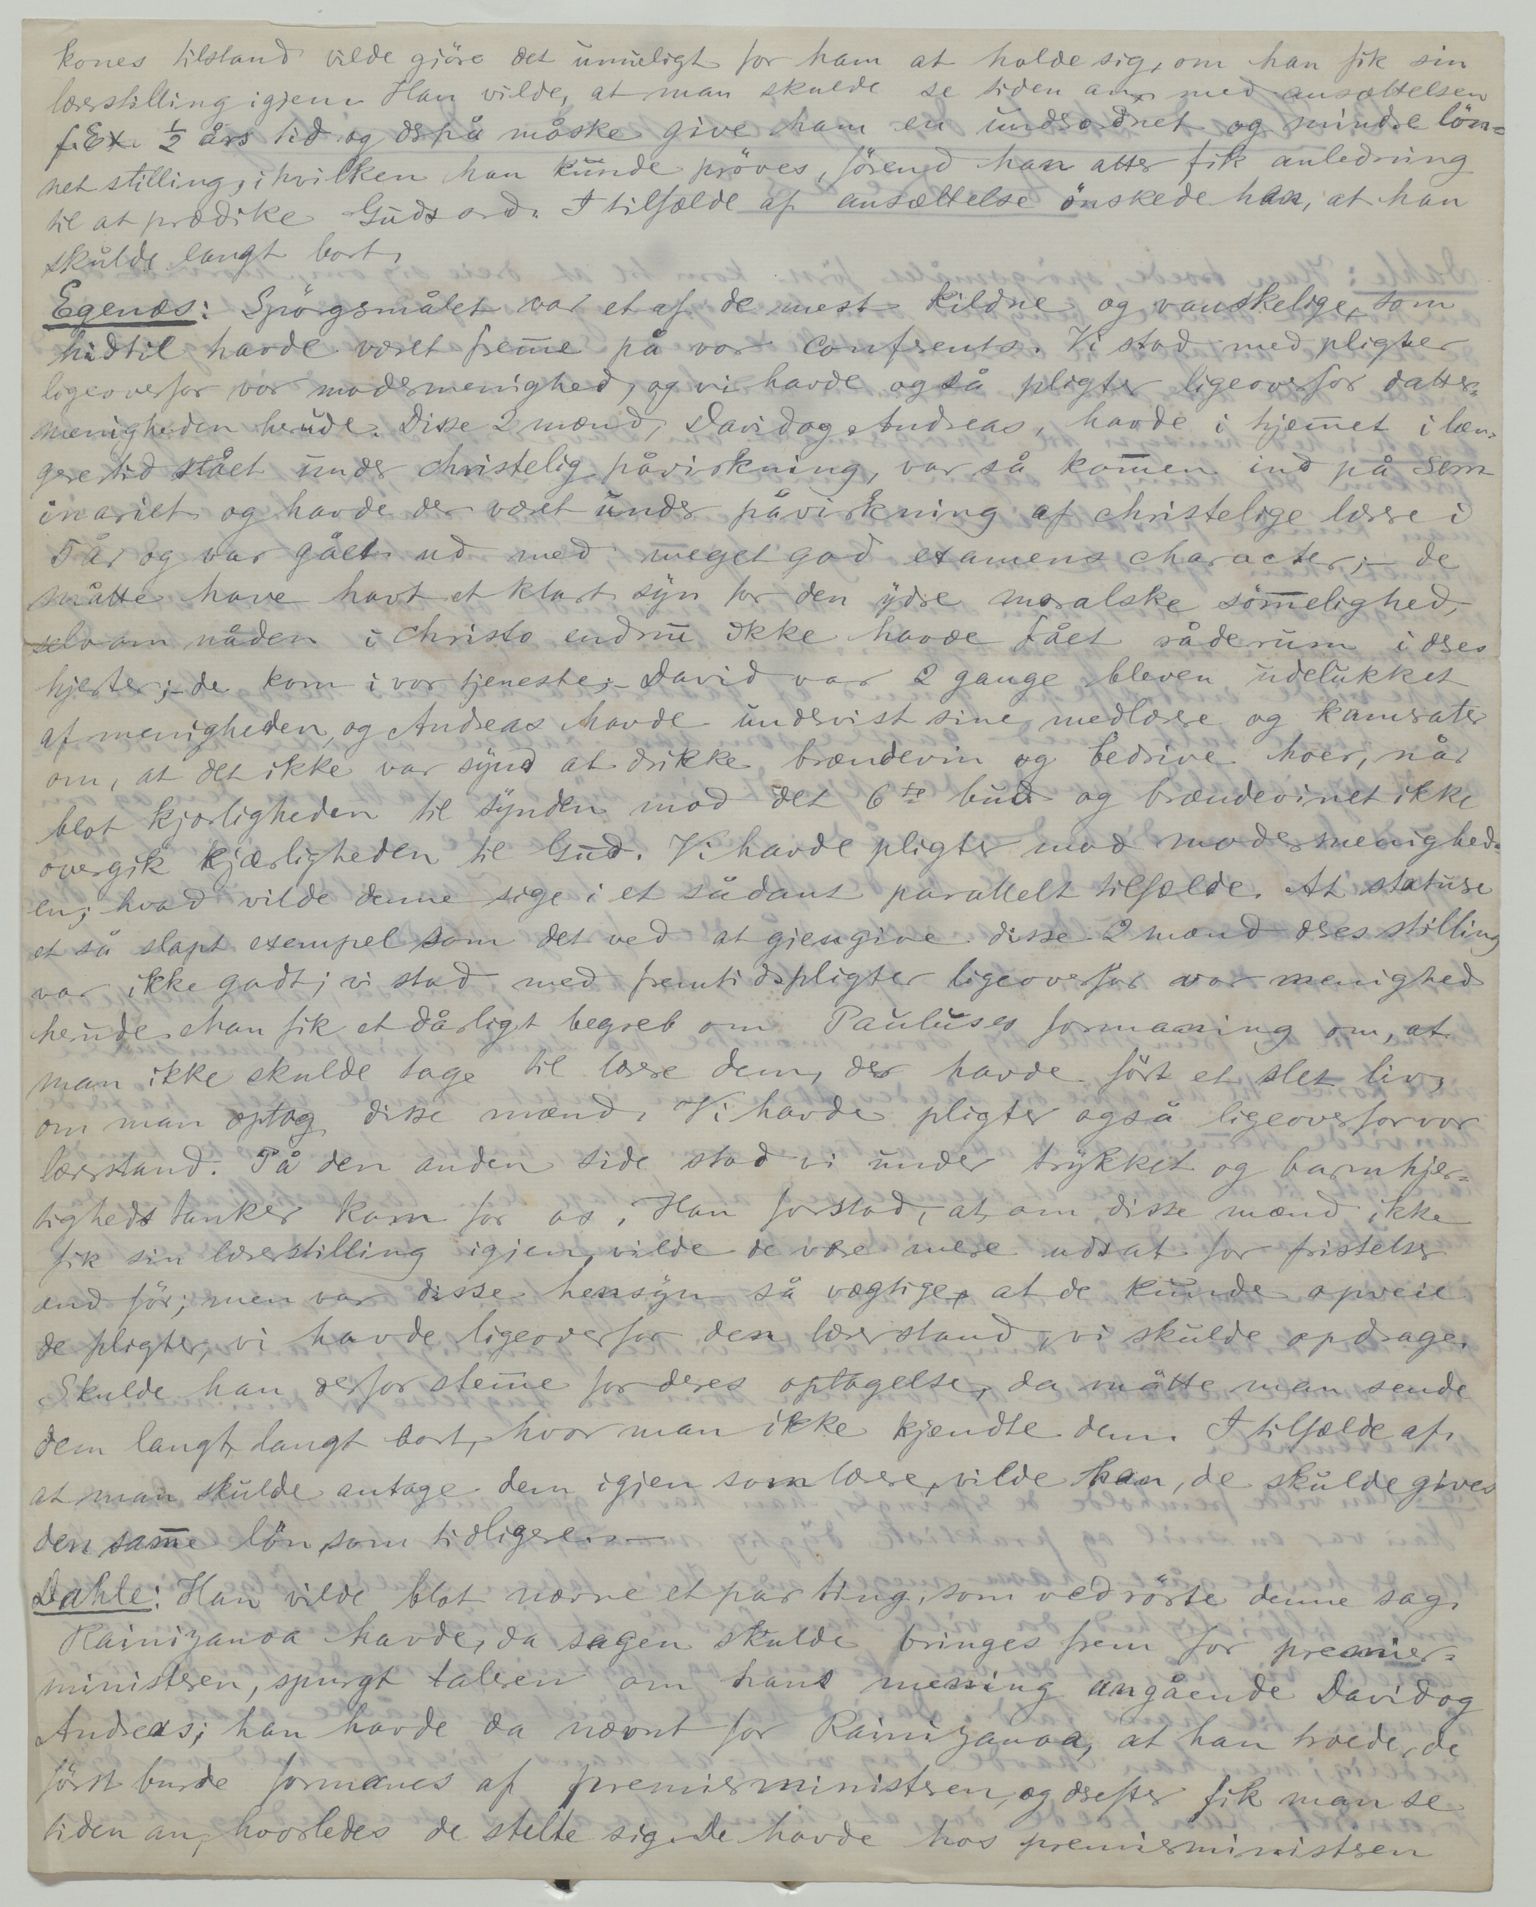 kones tilstand vilde gjöre det umueligt for ham at holde sig, om han fik sin
lærerstilling igjen. Han vilde, at man skulde se tiden an, med ansættelsen
f. Ex. ½ års tid og derpå måske give ham en underordnet og mindre lön=
net stilling, i hvilken han kunde pröves, förend han atter fik anledning
til at prædike Guds ord. I tilfælde af ansættelse önskede han, at han
skulde langt bort.
Egenæs: Spörgsmålet var et af de mest kildne og vanskelige, som
hidtil havde været frem̄e på vor conferents. Vi stod med pligter
ligeoverfor vor modermenighed, og vi havde også pligter ligeoverfor datter=
menigheden herude. Disse 2 mænd, David og Andreas, havde i hjem̄et i læn-
gere tid stået under christelig påvirkning, var så kom̄en ind på sem-
inariet og havde der været under påvirkning af christelige lærere i
5 år og var gået ud med meget god examens character; - de
måtte have havt et klart syn for den ydre moralske söm̄elighed,
selv om nåden i Christo endnu ikke havde fået råderum i deres
hjerter; - de kom i vor tjeneste; - David var 2 gange bleven udelukket
af menigheden, og Andreas havde undervist sine medlærere og kamerater
om, at det ikke var synd at drikke brændevin og bedrive hoer, når
blot kjærligheden til synden mod det 6te bud og brændevinet ikke
overgik kjærligheden til Gud. Vi havde pligter mod modermenighed=
en; hvad vilde denne sige i et sådant parallelt tilfælde. At statuere
et så slapt exempel som det ved at gjengive disse 2 mænd deres stilling
var ikke godt; vi stod med fremtidspligter ligeoverfor vor menighed
herude. Man fik et dårligt begreb om Pauluses formaning om, at
man ikke skulde tage til lærere dem, der havde fört et slet liv,
om man optog disse mænd. Vi havde pligter også ligeoverfor vor
lærerstand. På den anden side stod vi under trykket og barmhjer=
tigheds tanker kom for os. Han forstod, at om disse mænd ikke
fik sin lærerstilling igjen, vilde de være mere udsat for fristelser
end för; men var disse hensyn så vægtige, at de kunde opveie
de pligter, vi havde ligeoverfor den lærerstand, vi skulde opdrage.
Skulde han derfor stem̄e for deres optagelse, da måtte man sende
dem langt, langt bort, hvor man ikke kjendte dem. I tilfælde af,
at man skulde antage dem igjen som lærere, vilde han, de skulde gives
den sam̄e lön som tidligere. —
Dahle: Han vilde blot nævne et par ting, som vedrörte denne sag.
Rainizanoa havde, da sagen skulde bringes frem for premier=
ministeren, spurgt taleren om hans mening angående David og
Andreas; han havde da nævnt for Rainizanoa, at han troede, de
först burde formanes af premierministeren, og derefter fik man se
tiden an, hvorledes de stelte sig. De havde hos premierministeren